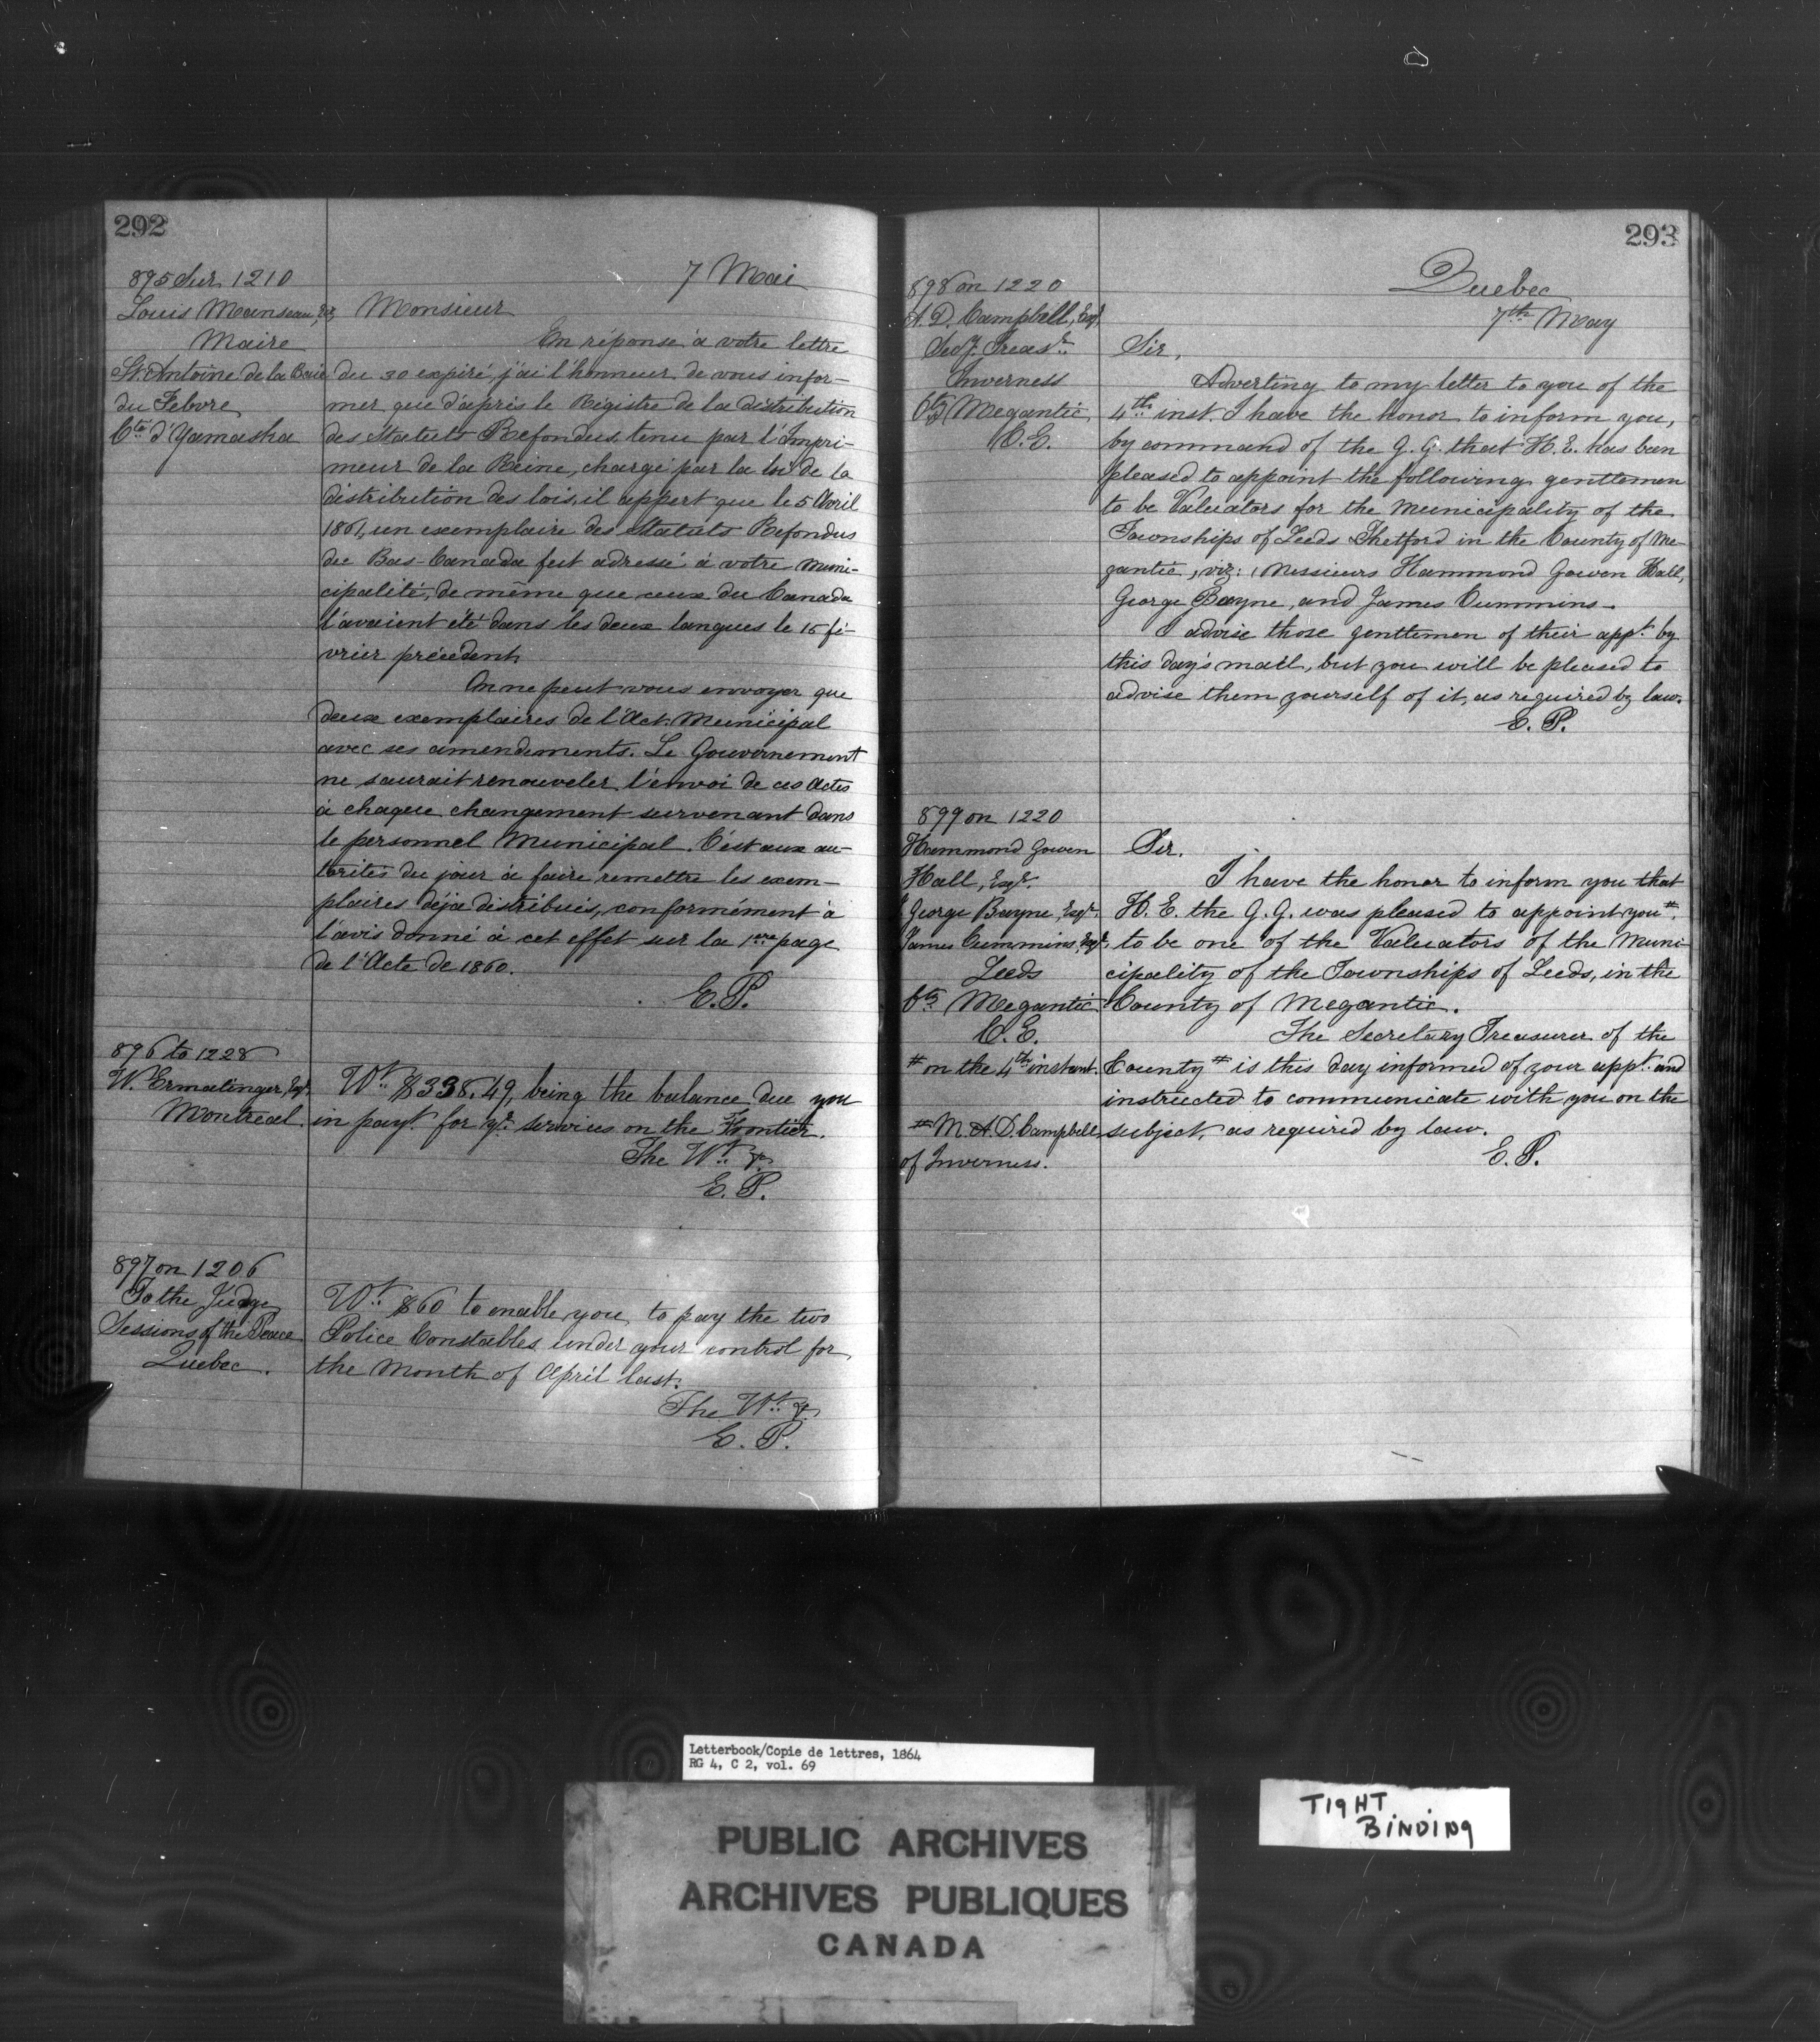 292
7 Mai
895 Sur 1210
Louis Manseau, Ecr
Maire
St. Antoine de la Baie
du Febvre
Cté d'Yamaska
Monsieur
En réponse à votre lettre
du 30 expiré, j'ai l'honneur de vous infor-
mer que d'après le Régistre de la distribution
des Statuts Refondus, tenu par l'Impri-
meur de la Reine, chargé par la loi de la
distribution des lois, il appert que le 5 Avril
1861, un exemplaire des Statuts Refondus
du Bas-Canada fut adressé à votre Muni-
cipalité, de même que ceux du Canada
l'avaient été dans les deux langues le 15 fé-
vrier précédent.
On ne peut vous envoyer que
deux exemplaires de l'Act. Municipal
avec ses amendements. Le Gouvernement
ne saurait renouveler l'envoi de ces Actes
à chaque changement survenant dans
le personnel Municipal. C'est aux au-
torités du jour à faire remettre les exem-
plaires déjà distribués, conformément à
l'avis donné à cet effet sur la 1ère page
de l'Acte de 1860.
E. P.
896 to 1228
W. Ermatinger, Esqr.
Montreal.
Wt. $338.49, being the balance due you
in payt. for yr. services on the Frontier.
The Wt. &.
E. P.
897 on 1206
To the Judge
Sessions of the Peace
Quebec.
Wt. $60 to enable you to pay the two
Police Constables under your control for
the Month of April last.
The Wt. &.
E. P.
293
Quebec
7th May
898 on 1220
A. D. Campbell, Esqr.
Secy. Treasr.
Inverness
Cty Megantic
C. E.
Sir,
Adverting to my letter to you of the
4th inst. I have the honor to inform you,
by command of the G. G. that H. E. has been
pleased to appoint the following gentlemen
to be Valuators for the Municipality of the
Townships of Leeds Thetford in the County of Me-
gantic, viz: Messieurs Hammond Gowen Hall,
George Bayne, and James Cummins.
I advise those gentlemen of their appt. by
this day's mail, but you will be pleased to
advise them yourself of it, as required by law.
E. P.
899 on 1220
Hammond Gowen
Hall, Esqr.
George Bayne, Esqr.
James Cummins, Esqr.
Leeds
Cty Megantic
C. E.
# on the 4th instant.
# M. A. D. Campbell
of Inverness.
Sir,
I have the honor to inform you that
H. E. the G. G. was pleased to appoint you #
to be one of the Valuators of the Muni-
cipality of the Townships of Leeds, in the
County of Megantic.
The Secretary Treasurer of the
County # is this day informed of your appt. and
instructed to communicate with you on the
subject, as required by law.
E. P.
Letterbook/Copie de lettres, 1864
RG 4, C 2, vol. 69
PUBLIC ARCHIVES
ARCHIVES PUBLIQUES
CANADA
TIGHT
BINDING